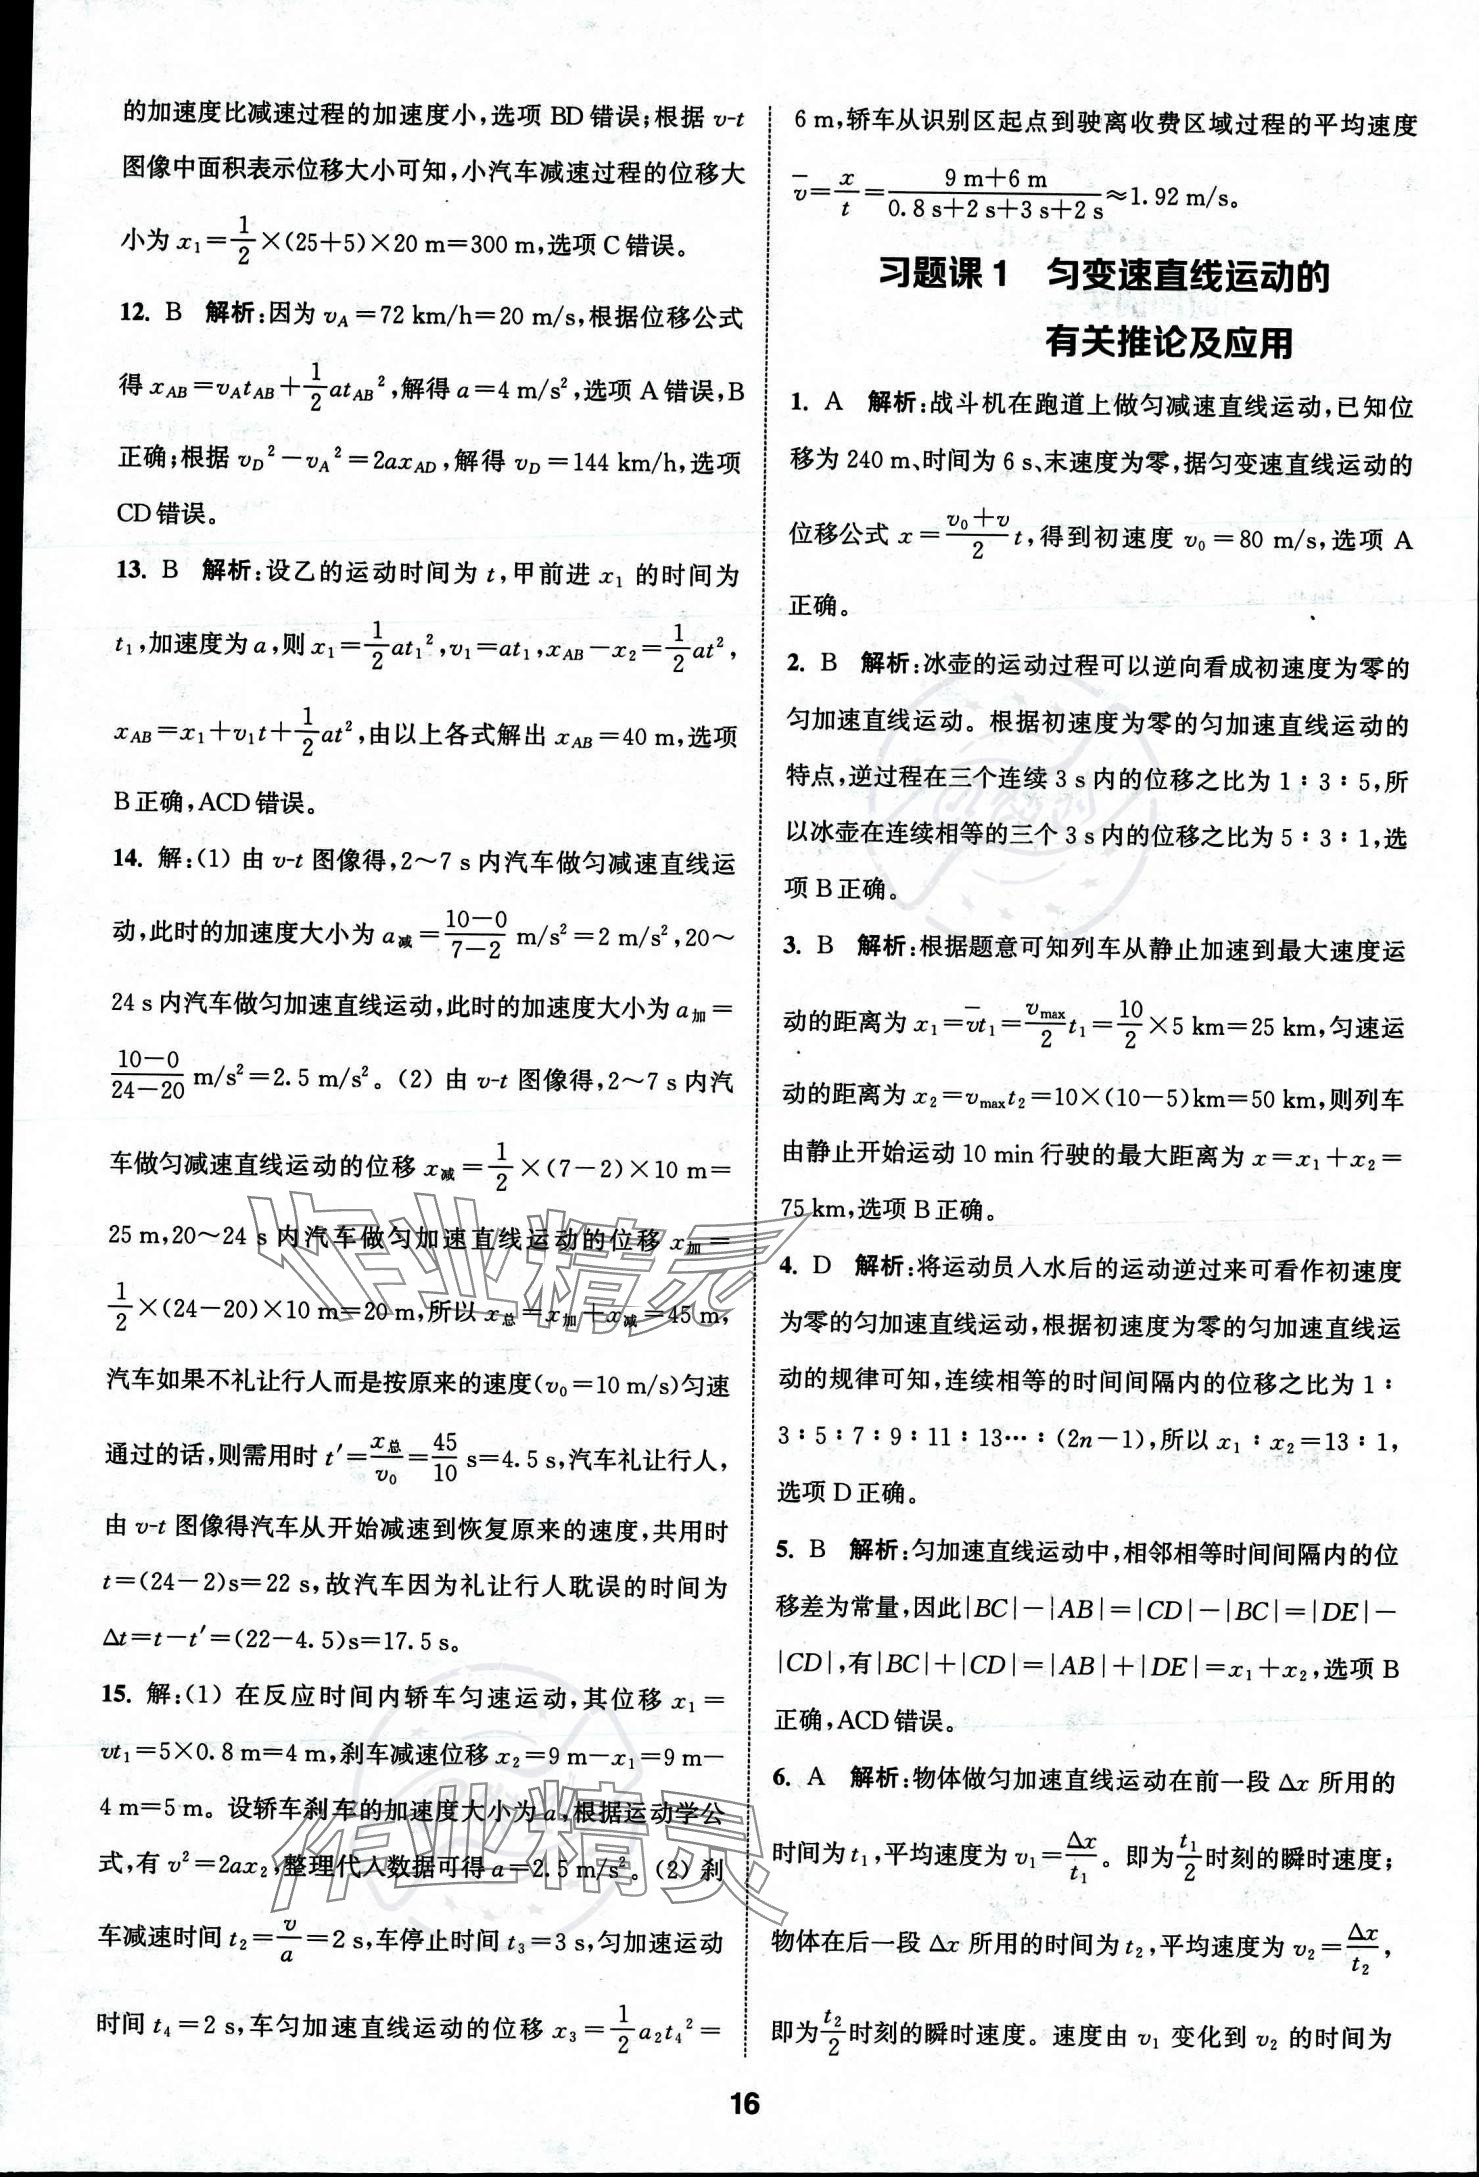 的加速度比减速过程的加速度小,选项 BD 错误;根据 v-t
图像中面积表示位移大小可知,小汽车减速过程的位移大
小为 x₁=1/2×(25+5)×20 m=300 m,选项 C 错误。
12. B 解析:因为 v_A=72 km/h=20 m/s,根据位移公式
得 x_AB=v_A t_AB+1/2 a t_AB²,解得 a=4 m/s²,选项 A 错误,B
正确;根据 v_D²-v_A²=2ax_AD,解得 v_D=144 km/h,选项
CD 错误。
13. B 解析:设乙的运动时间为 t,甲前进 x₁ 的时间为
t₁,加速度为 a,则 x₁=1/2 at₁²,v₁=at₁,x_AB-x₂=1/2 at²,
x_AB=x₁+v₁t+1/2 at²,由以上各式解出 x_AB=40 m,选项
B 正确,ACD 错误。
14. 解:(1) 由 v-t 图像得,2~7 s 内汽车做匀减速直线运
动,此时的加速度大小为 a减=(10-0)/(7-2) m/s²=2 m/s²,20~
24 s 内汽车做匀加速直线运动,此时的加速度大小为 a加=
(10-0)/(24-20) m/s²=2.5 m/s²。(2) 由 v-t 图像得,2~7 s 内汽
车做匀减速直线运动的位移 x减=1/2×(7-2)×10 m=
25 m,20~24 s 内汽车做匀加速直线运动的位移 x加=
1/2×(24-20)×10 m=20 m,所以 x总=x加+x减=45 m,
汽车如果不礼让行人而是按原来的速度(v₀=10 m/s)匀速
通过的话,则需用时 t′=x总/v₀=45/10 s=4.5 s,汽车礼让行人,
由 v-t 图像得汽车从开始减速到恢复原来的速度,共用时
t=(24-2)s=22 s,故汽车因为礼让行人耽误的时间为
Δt=t-t′=(22-4.5)s=17.5 s。
15. 解:(1) 在反应时间内轿车匀速运动,其位移 x₁=
vt₁=5×0.8 m=4 m,刹车减速位移 x₂=9 m-x₁=9 m-
4 m=5 m。设轿车刹车的加速度大小为 a,根据运动学公
式,有 v²=2ax₂,整理代入数据可得 a=2.5 m/s²。(2) 刹
车减速时间 t₂=v/a=2 s,车停止时间 t₃=3 s,匀加速运动
时间 t₄=2 s,车匀加速直线运动的位移 x₃=1/2 a₂t₄²=
6 m,轿车从识别区起点到驶离收费区域过程的平均速度
v̄=x/t=(9 m+6 m)/(0.8 s+2 s+3 s+2 s)≈1.92 m/s。
习题课 1 匀变速直线运动的
有关推论及应用
1. A 解析:战斗机在跑道上做匀减速直线运动,已知位
移为 240 m、时间为 6 s、末速度为零,据匀变速直线运动的
位移公式 x=(v₀+v)/2 t,得到初速度 v₀=80 m/s,选项 A
正确。
2. B 解析:冰壶的运动过程可以逆向看成初速度为零的
匀加速直线运动。根据初速度为零的匀加速直线运动的
特点,逆过程在三个连续 3 s 内的位移之比为 1∶3∶5,所
以冰壶在连续相等的三个 3 s 内的位移之比为 5∶3∶1,选
项 B 正确。
3. B 解析:根据题意可知列车从静止加速到最大速度运
动的距离为 x₁=v̄t₁=v_max/2 t₁=10/2×5 km=25 km,匀速运
动的距离为 x₂=v_max t₂=10×(10-5)km=50 km,则列车
由静止开始运动 10 min 行驶的最大距离为 x=x₁+x₂=
75 km,选项 B 正确。
4. D 解析:将运动员入水后的运动逆过来可看作初速度
为零的匀加速直线运动,根据初速度为零的匀加速直线运
动的规律可知,连续相等的时间间隔内的位移之比为 1∶
3∶5∶7∶9∶11∶13…∶(2n-1),所以 x₁∶x₂=13∶1,
选项 D 正确。
5. B 解析:匀加速直线运动中,相邻相等时间间隔内的位
移差为常量,因此|BC|-|AB|=|CD|-|BC|=|DE|-
|CD|,有|BC|+|CD|=|AB|+|DE|=x₁+x₂,选项 B
正确,ACD 错误。
6. A 解析:物体做匀加速直线运动在前一段 Δx 所用的
时间为 t₁,平均速度为 v₁=Δx/t₁。即为 t₁/2 时刻的瞬时速度;
物体在后一段 Δx 所用的时间为 t₂,平均速度为 v₂=Δx/t₂,
即为 t₂/2 时刻的瞬时速度。速度由 v₁ 变化到 v₂ 的时间为
16
作业精灵
作业精灵